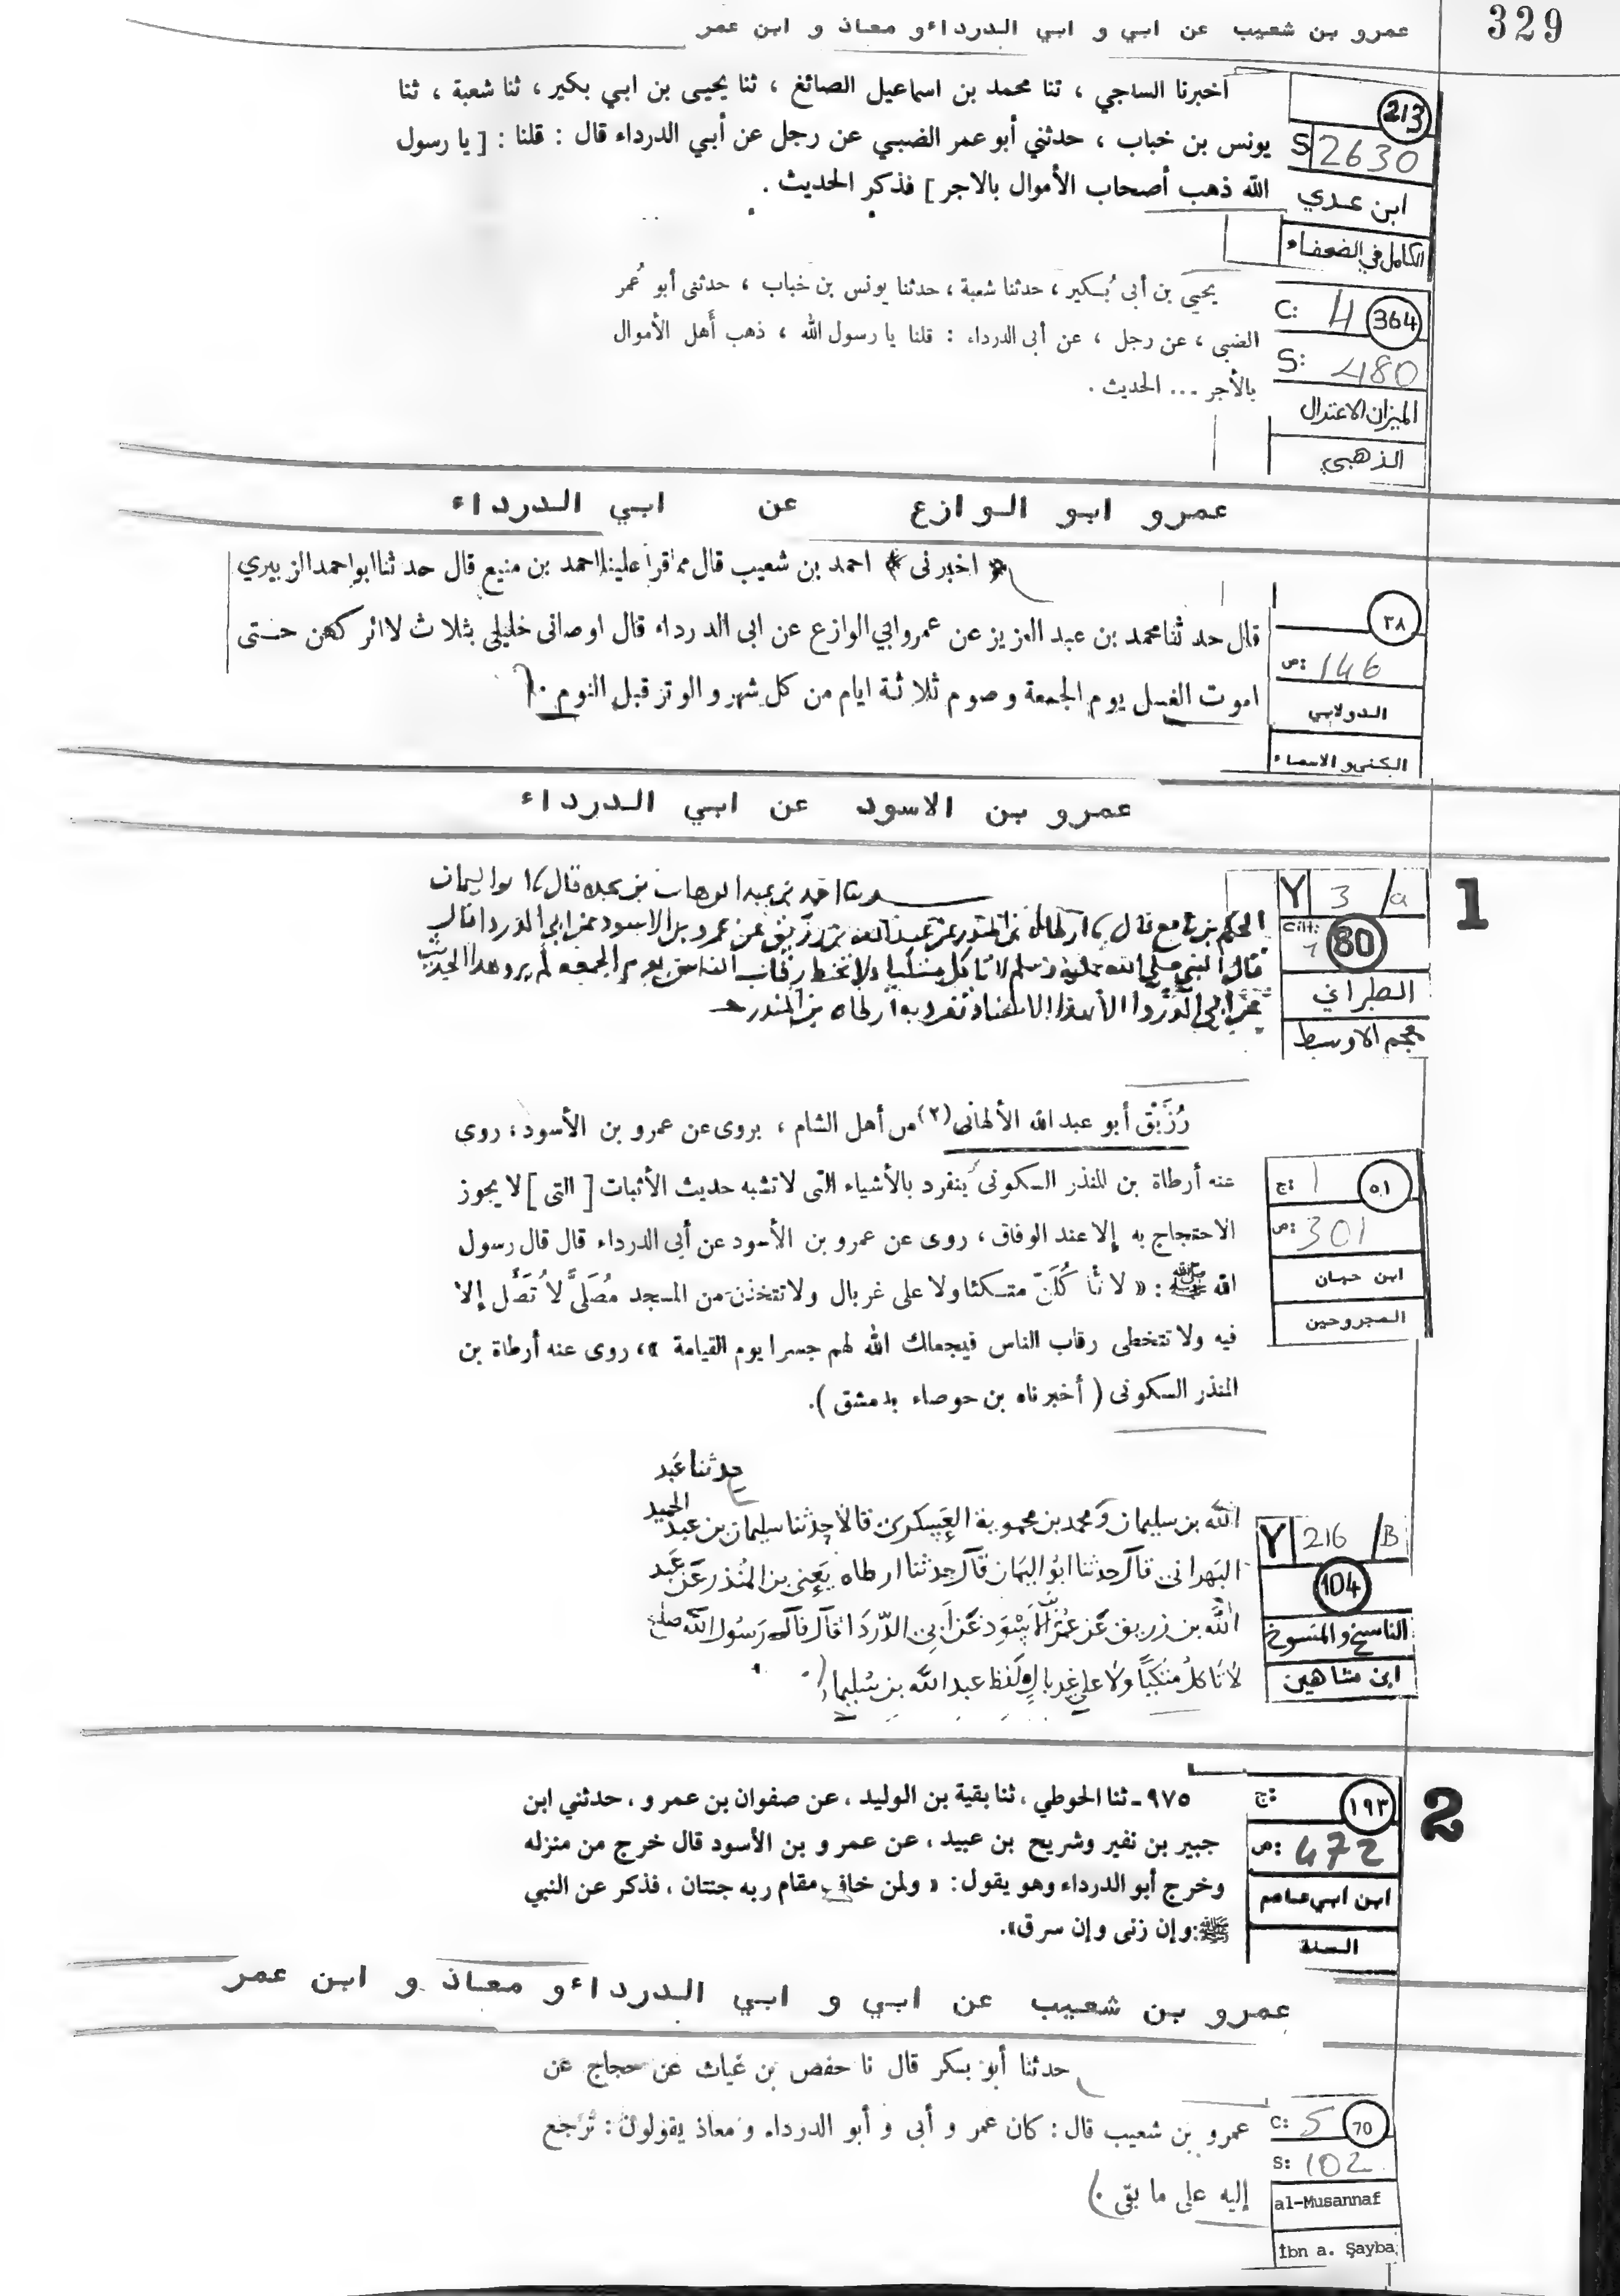 329
عمرو بن شعيب عن ابي و ابي الدرداء و معاذ و ابن عمر
اخبرنا الساجي ، ثنا محمد بن اسماعيل الصائغ ، ثنا يحيى بن ابي بكير ، ثنا شعبة ، ثنا
يونس بن خباب ، حدثني أبو عمر الضبي عن رجل عن أبي الدرداء قال : قلنا : [ يا رسول
الله ذهب أصحاب الأموال بالاجر ] فذكر الحديث .
213
S 2630
ابن عدي
الكامل في الضعفاء
يحيى بن أبى بُكير ، حدثنا شعبة ، حدثنا يونس بن خباب ، حدثنى أبو عُمر
الضبى ، عن رجل ، عن أبى الدرداء : قلنا يا رسول الله ، ذهب أهل الأموال
بالأجر ... الحديث .
C: 4 364
S: 480
الميزان الاعتدال
الذهبي
عمرو ابو الوازع عن ابي الدرداء
﴿ اخبرنى ﴾ احمد بن شعيب قال مما قرأ علينا احمد بن منيع قال حد ثنا ابو احمد الز بيري
قال حد ثنا محمد بن عبد العزيز عن عمرو ابي الوازع عن ابى الدرداء قال اوصانى خليلى بثلاث لا اتركهن حتى
اموت الغسل يوم الجمعة و صوم ثلاثة ايام من كل شهر و الوتر قبل النوم .
٢٨
ص: 146
الدولابي
الكنى و الاسماء
عمرو بن الاسود عن ابي الدرداء
1
حدثنا احمد بن عبد الوهاب بن نجدة قال ابو اليمان
الحكم بن نافع قال ارطاة بن المنذر عن عبد الله بن رزيق عن عمرو بن الاسود عن ابي الدردا قال
قال النبي صلى الله عليه وسلم لا تأكل متكيا ولا تخط رقاب الناس يوم الجمعه لم يرو هذا الحديث
عن أبي الدردا الا بهذا الاسناد تفرد به أرطاه بن المنذر
Y 3 /a
Cilt: 1 80
الطبراني
معجم الاوسط
رُزَيْق أبو عبد الله الألهانى (٢) من أهل الشام ، يروى عن عمرو بن الأسود ، روى
عنه أرطاة بن المنذر السكونى ينفرد بالأشياء التى لا تشبه حديث الأثبات [ التى ] لا يجوز
الاحتجاج به إلا عند الوفاق ، روى عن عمرو بن الأسود عن أبى الدرداء قال قال رسول
الله ﷺ : « لا تأكُلَنّ متكئا ولا على غربال ولا تتخذن من المسجد مُصَلًّى لا تُصَلِّ إلا
فيه ولا تتخطى رقاب الناس فيجعلك الله لهم جسرا يوم القيامة » ، روى عنه أرطاة بن
المنذر السكونى ( أخبرناه بن حوصاء بدمشق ).
ج: 1 ٥١
ص: 301
ابن حبان
المجروحين
حدثنا عبد
الله بن سليمان ومحمد بن محمويه العسكرى قالا حدثنا سليمان بن عبد الحميد
البهرانى قال حدثنا ابو اليمان قال حدثنا ارطاه يعنى بن المنذر عن عبد
الله بن زريق عن عمرو بن الاسود عن أبى الدردا قال قال رسول الله صلعم
لا تأكل متكيا ولا على غربال ولفظ عبد الله بن سليمان
Y 216 /B
104
الناسخ و المنسوخ
ابن شاهين
2
٩٧٥ ـ ثنا الحوطي ، ثنا بقية بن الوليد ، عن صفوان بن عمرو ، حدثني ابن
جبير بن نفير وشريح بن عبيد ، عن عمرو بن الأسود قال خرج من منزله
وخرج أبو الدرداء وهو يقول : « ولمن خاف مقام ربه جنتان ، فذكر عن النبي
ﷺ : وإن زنى وإن سرق ».
ج: ١٩٣
ص: 472
ابن ابي عاصم
السنة
عمرو بن شعيب عن ابي و ابي الدرداء و معاذ و ابن عمر
حدثنا أبو بكر قال نا حفص بن غياث عن حجاج عن
عمرو بن شعيب قال : كان عمر و أبى و أبو الدرداء و معاذ يقولون : تُرجع
إليه على ما بقى .
C: 5 70
S: 102
al-Musannaf
İbn a. Şayba